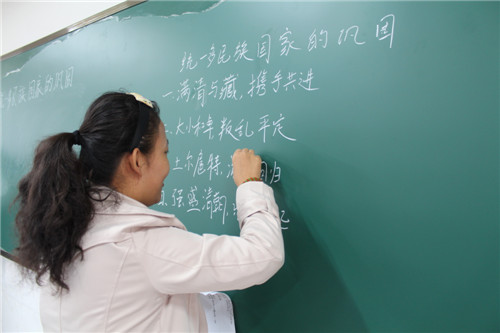 统一多民族国家的巩固
族国家的巩固
一.满清与藏,携手共进
大小和卓,叛乱平定
土尔扈特,
归
强盛清朝,